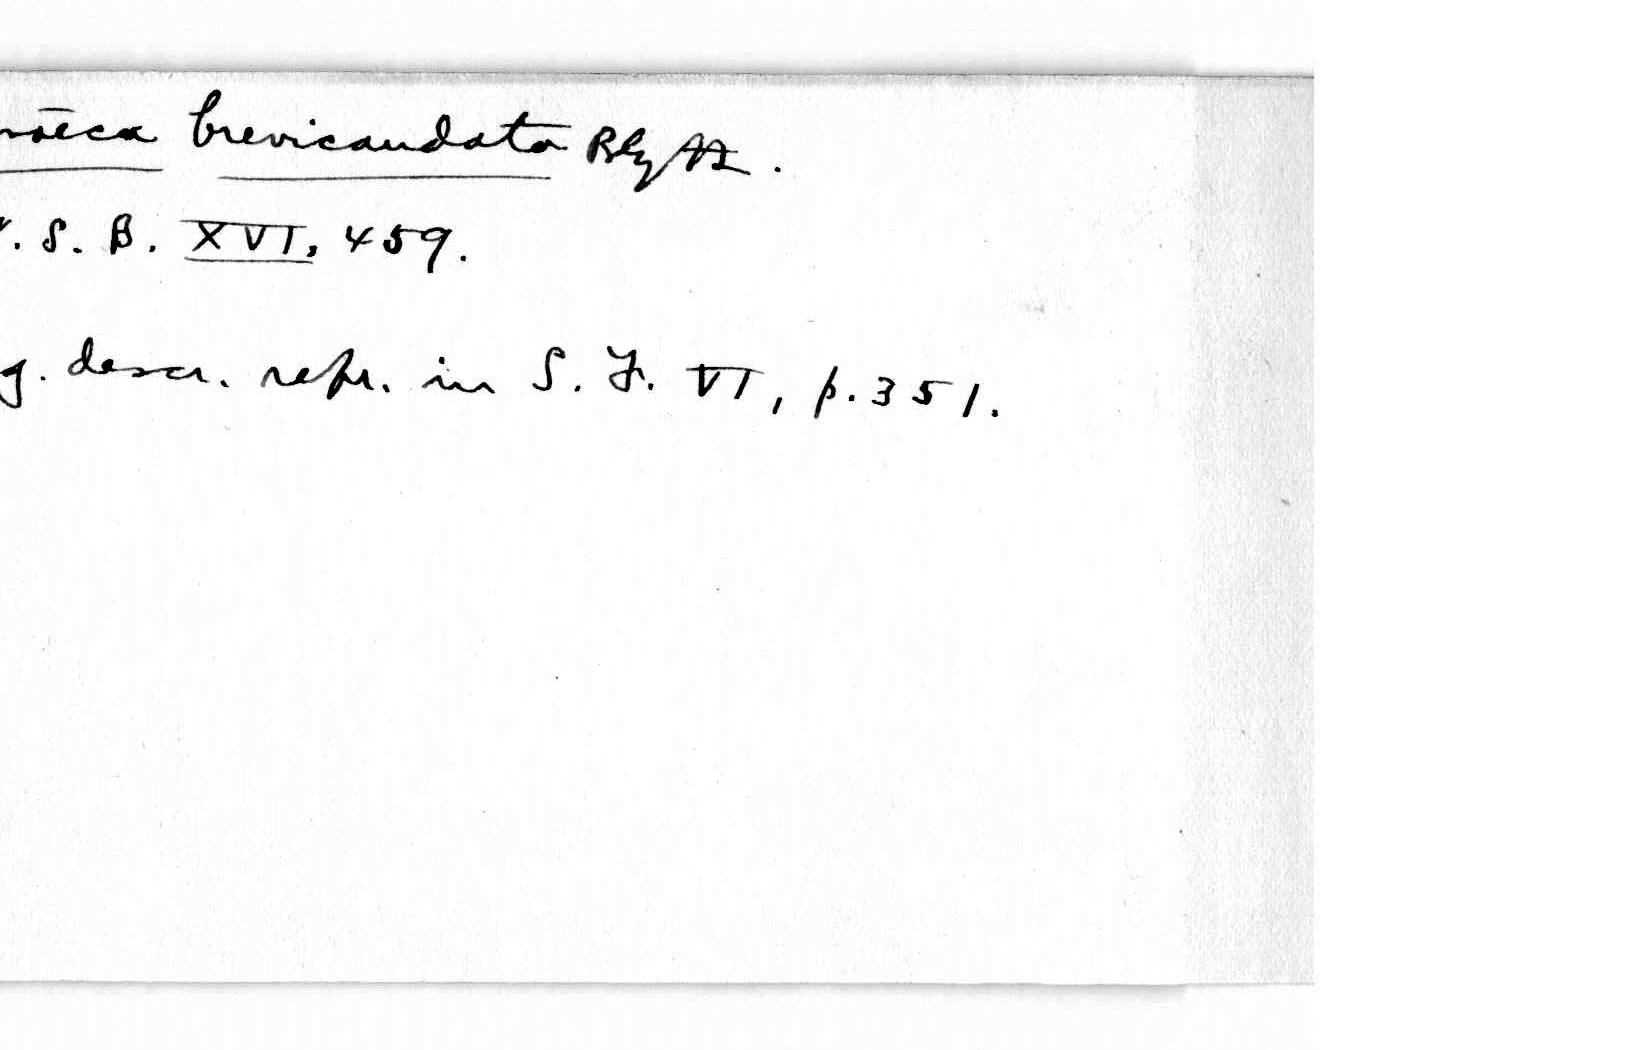 brevicaudata Blyth.
. S. B. XVI, 459.
g. descr. repr. in S. F. VI, p. 351.